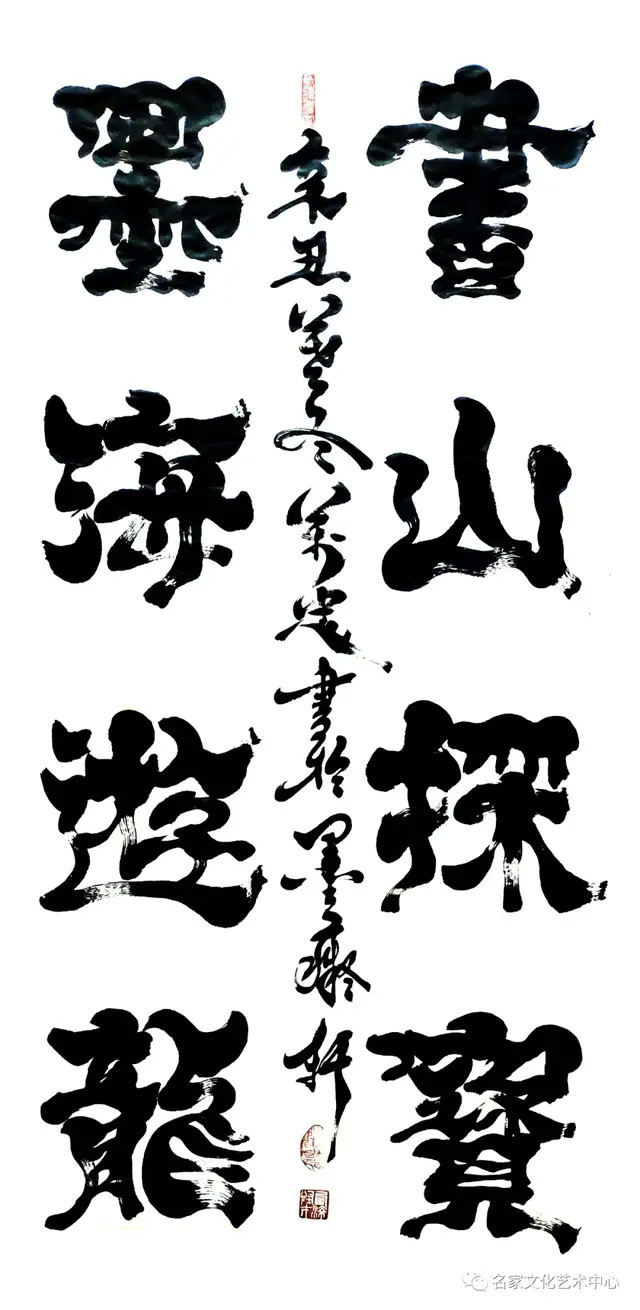 書山探寶
墨海遊龍
辛丑暮冬萬書於墨癡軒
名家文化艺术中心